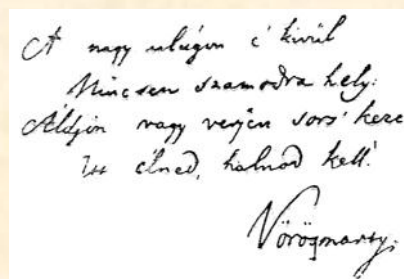 A nagy világon e' kivűl
Nincsen számodra hely:
Áldjon vagy verjen sors' keze
Itt élned, halnod kell!
Vörösmarty